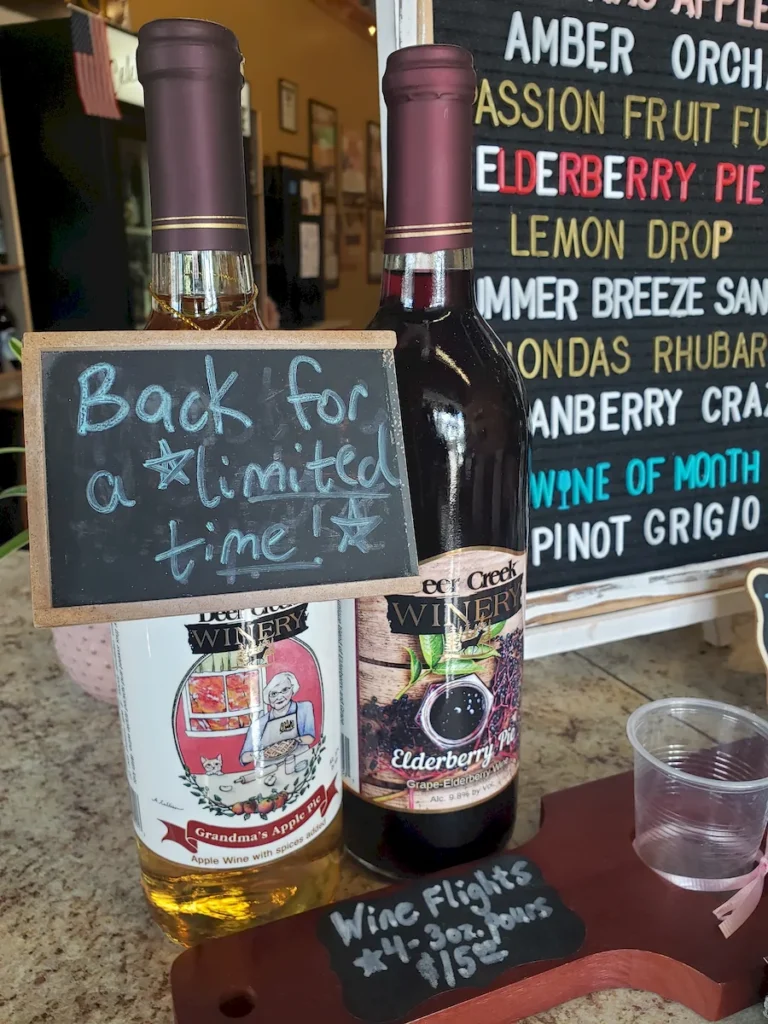 AMBER ORCH
ASSION FRUIT FU
ELDERBERRY PIE
LEMON DROP
UMMER BREEZE SAN
ONDAS RHUBAR
ANBERRY CRAZ
WINE OF MONTH
PINOT GRIGIO
Back for
a limited
time!
Deer Creek
WINERY
Grandma's Apple Pie
Apple Wine with spices added
eer Creek
WINERY
Elderberry Pie
Grape-Elderberry Wine
Alc. 9.8% by Vol.
Wine Flights
4-3oz. pours
$15.00